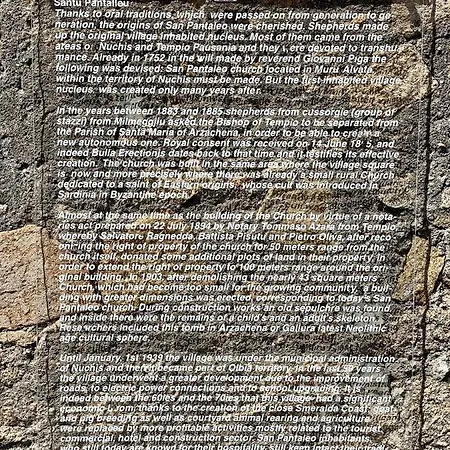 Santu Pantaleu
Thanks to oral traditions, which were passed on from generation to ge
neration, the origins of San Pantaleo were cherished. Shepherds made
up the original village inhabited nucleus. Most of them came from the
areas of Nuchis and Tempio Pausania and they were devoted to transhu
mance. Already in 1752 in the will made by reverend Giovanni Piga the
following was devised: San Pantaleo church located in Muru Alvatu
within the territory of Nuchis must be made. But the first inhabited village
nucleus was created only many years after.
In the years between 1883 and 1885 shepherds from cussorgie (group of
stazzi) from Milmeggiu asked the Bishop of Tempio to be separated from
the Parish of Santa Maria of Arzachena, in order to be able to create a
new autonomous one. Royal consent was received on 14 June 18 5, and
indeed Bulla Erectionis dates back to that time and it testifies its effective
creation. The church was built in the same area where the village square
is now and more precisely where there was already a small rural Church
dedicated to a saint of Eastern origins, whose cult was introduced in
Sardinia in Byzantine epoch.
Almost at the same time as the building of the Church by virtue of a nota-
ries act prepared on 22 July 1894 by Notary Tommaso Azara from Tempio
whereby Salvatore Ragnedda, Battista Pisutu and Pietro Oliva, after reco
gnizing the right of property of the church for 50 meters range from the
church itself, donated some additional plots of land in their property, in
order to extend the right of property to 100 meters range around the ori-
ginal building. In 1903, after demolishing the nearly 43 square meters
Church, which had become too small for the growing community, a buil-
ding with greater dimensions was erected, corresponding to today's San
Pantaleo church. During construction works an old sepulchre was found
and inside there were the remains of a child's and an adult's skeleton.
Researchers included this tomb in Arzachena or Gallura latest Neolithic
age cultural sphere.
Until January, 1st 1939 the village was under the municipal administration
of Nuchis and then became part of Olbia territory. In the last 50 years
the village underwent a greater development due to the improvement of
roads, to electric power connections and to school upgrading. It is
indeed between the 60ies and the 70ies that this village had a significant
economic thanks to the creation of the close Smeralda Coast, goat
and pig breeding as well as courtyard animal rearing and agriculture
were replaced by more profitable activities mostly related to the tourist
commercial, hotel and construction sector. San Pantaleo inhabitants,
who still today are known for their hospitality, still keep intact their tradi